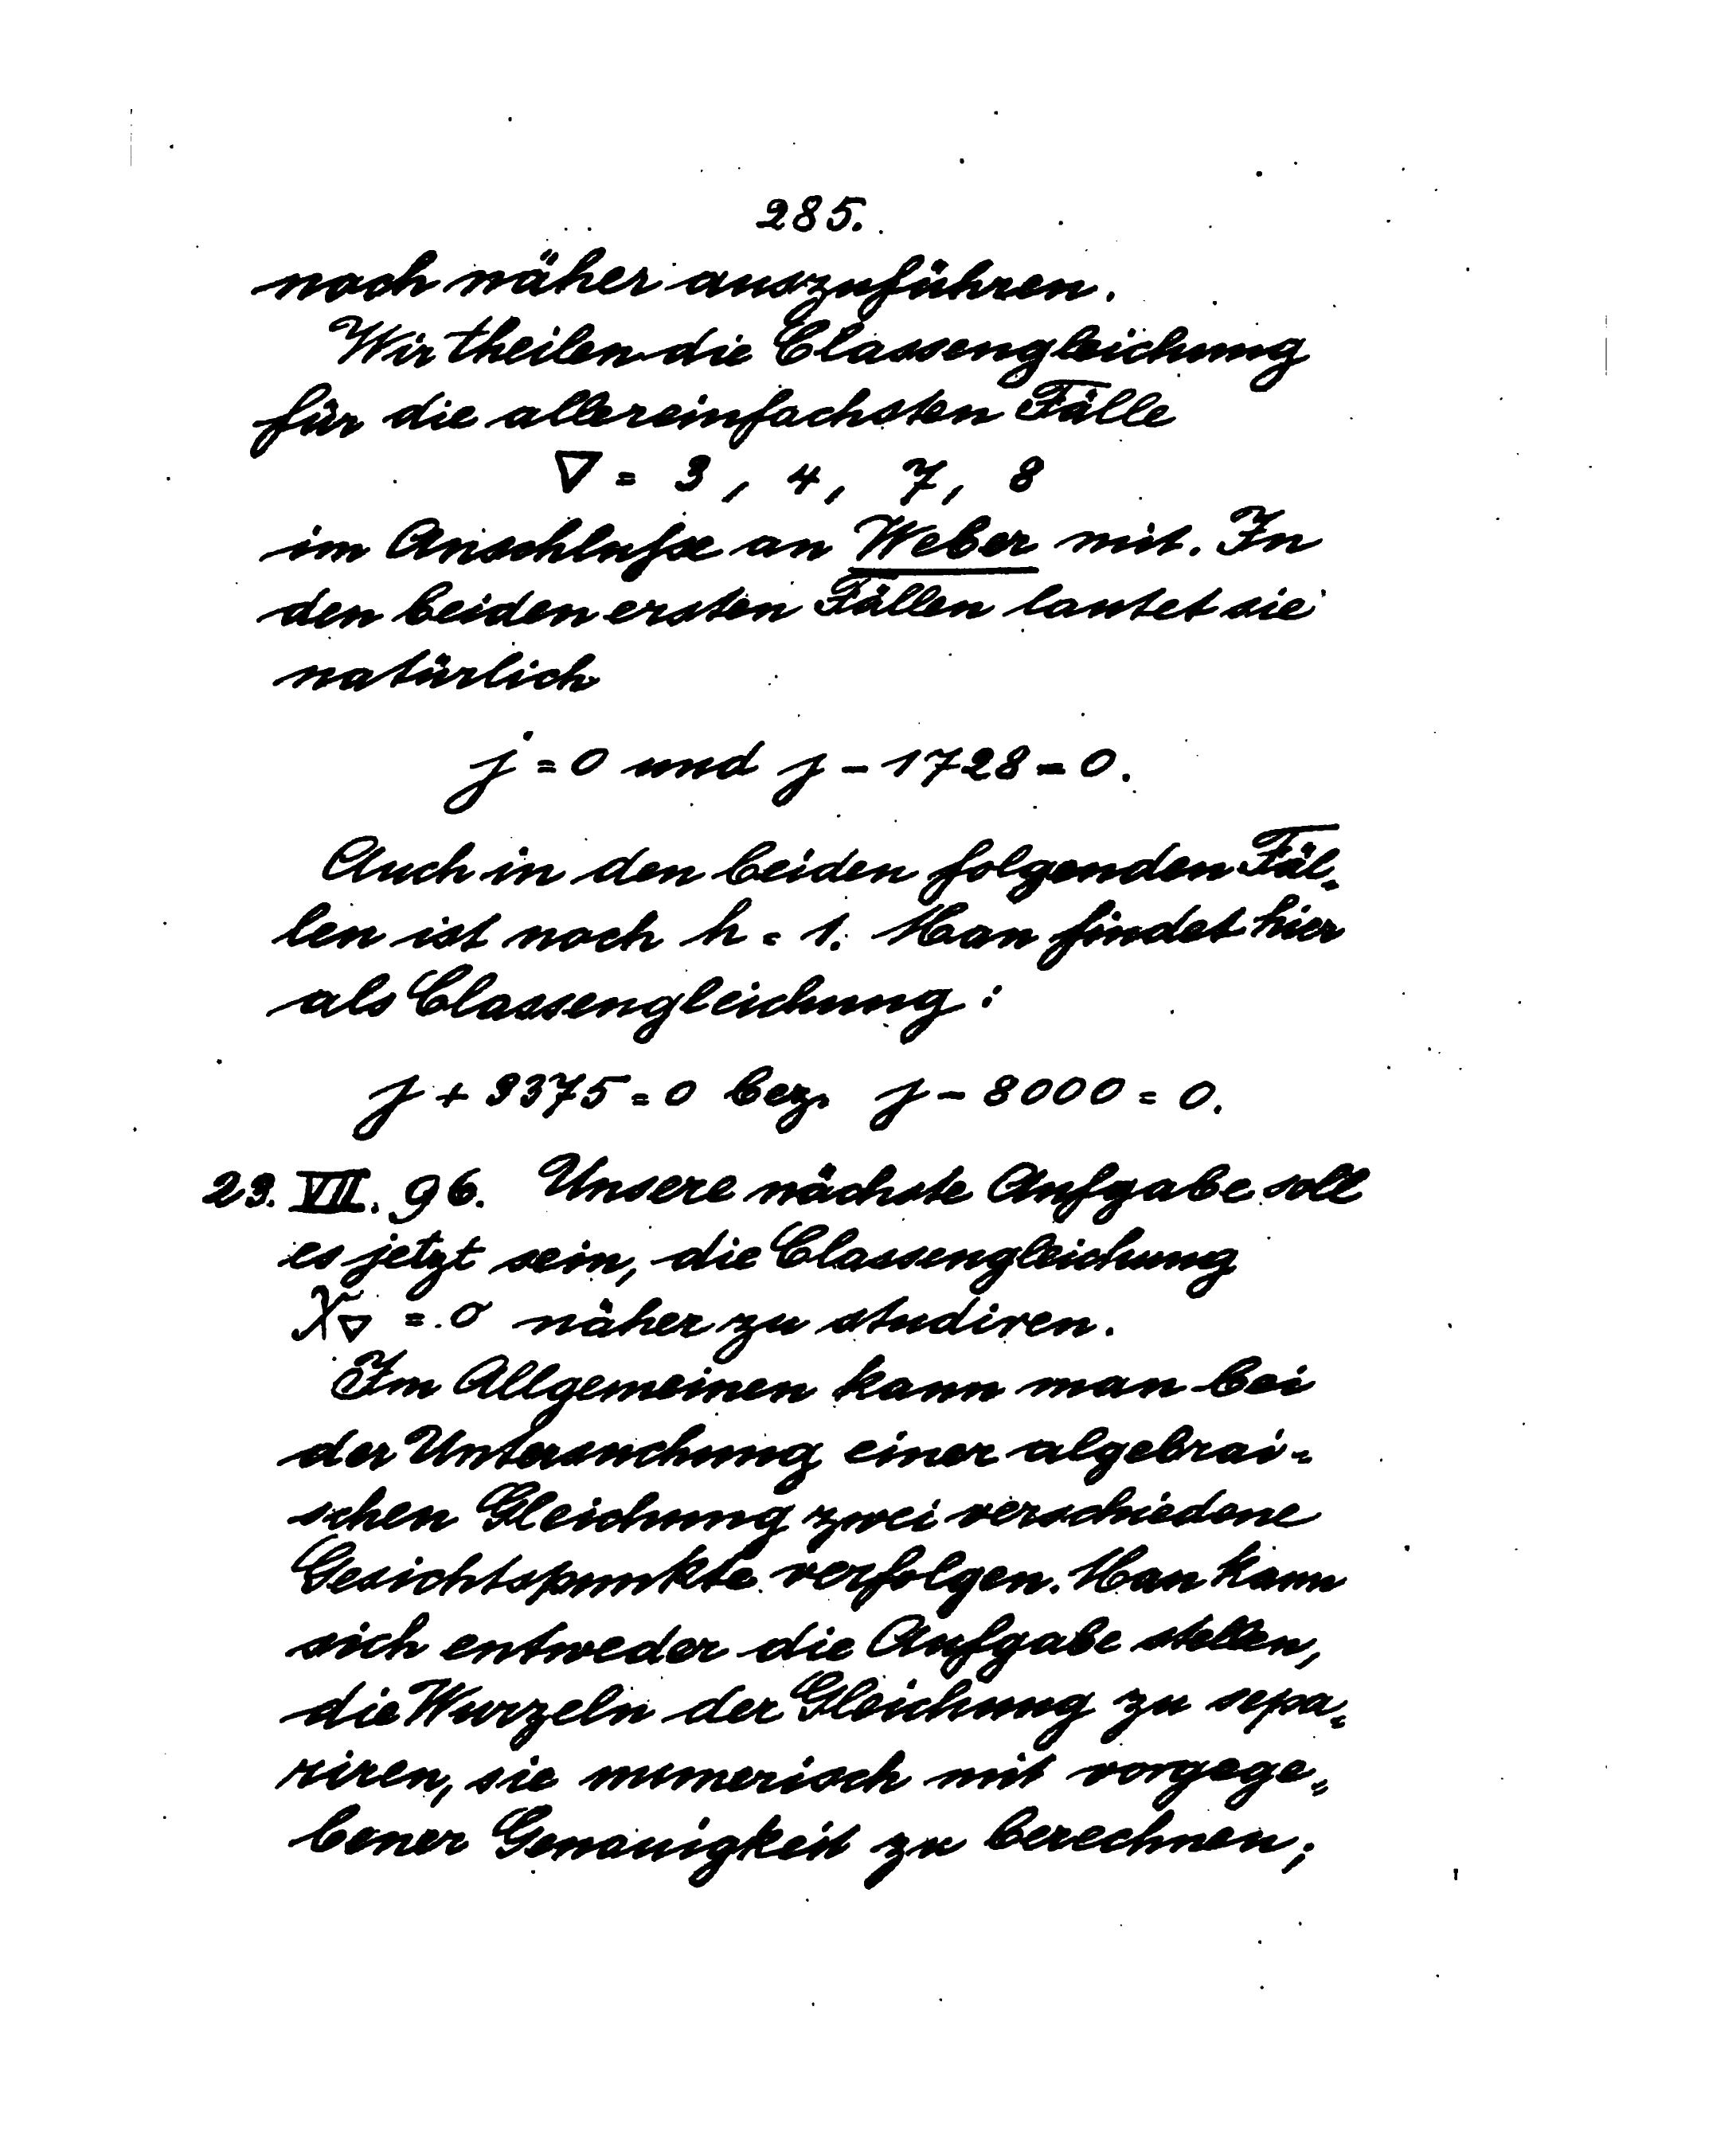 285.
noch näher auszuführen.
Wir theilen die Classengleichung
für die allereinfachsten Fälle
∇ = 3, 4, 7, 8
im Anschlusse an Weber mit. In
den beiden ersten Fällen lautet sie
natürlich
j = 0 und j - 1728 = 0.
Auch in den beiden folgenden Fäl-
len ist noch h = 1. Man findet hier
als Classengleichung:
j + 3375 = 0 bez. j - 8000 = 0.
23. VII. 96. Unsere nächste Aufgabe soll
es jetzt sein, die Classengleichung
X∇ = 0 näher zu studiren.
Im Allgemeinen kann man bei
der Untersuchung einer algebrai-
schen Gleichung zwei verschiedene
Gesichtspunkte verfolgen. Man kann
sich entweder die Aufgabe stellen,
die Wurzeln der Gleichung zu sepa-
riren, sie numerisch mit vorgege-
bener Genauigkeit zu berechnen;